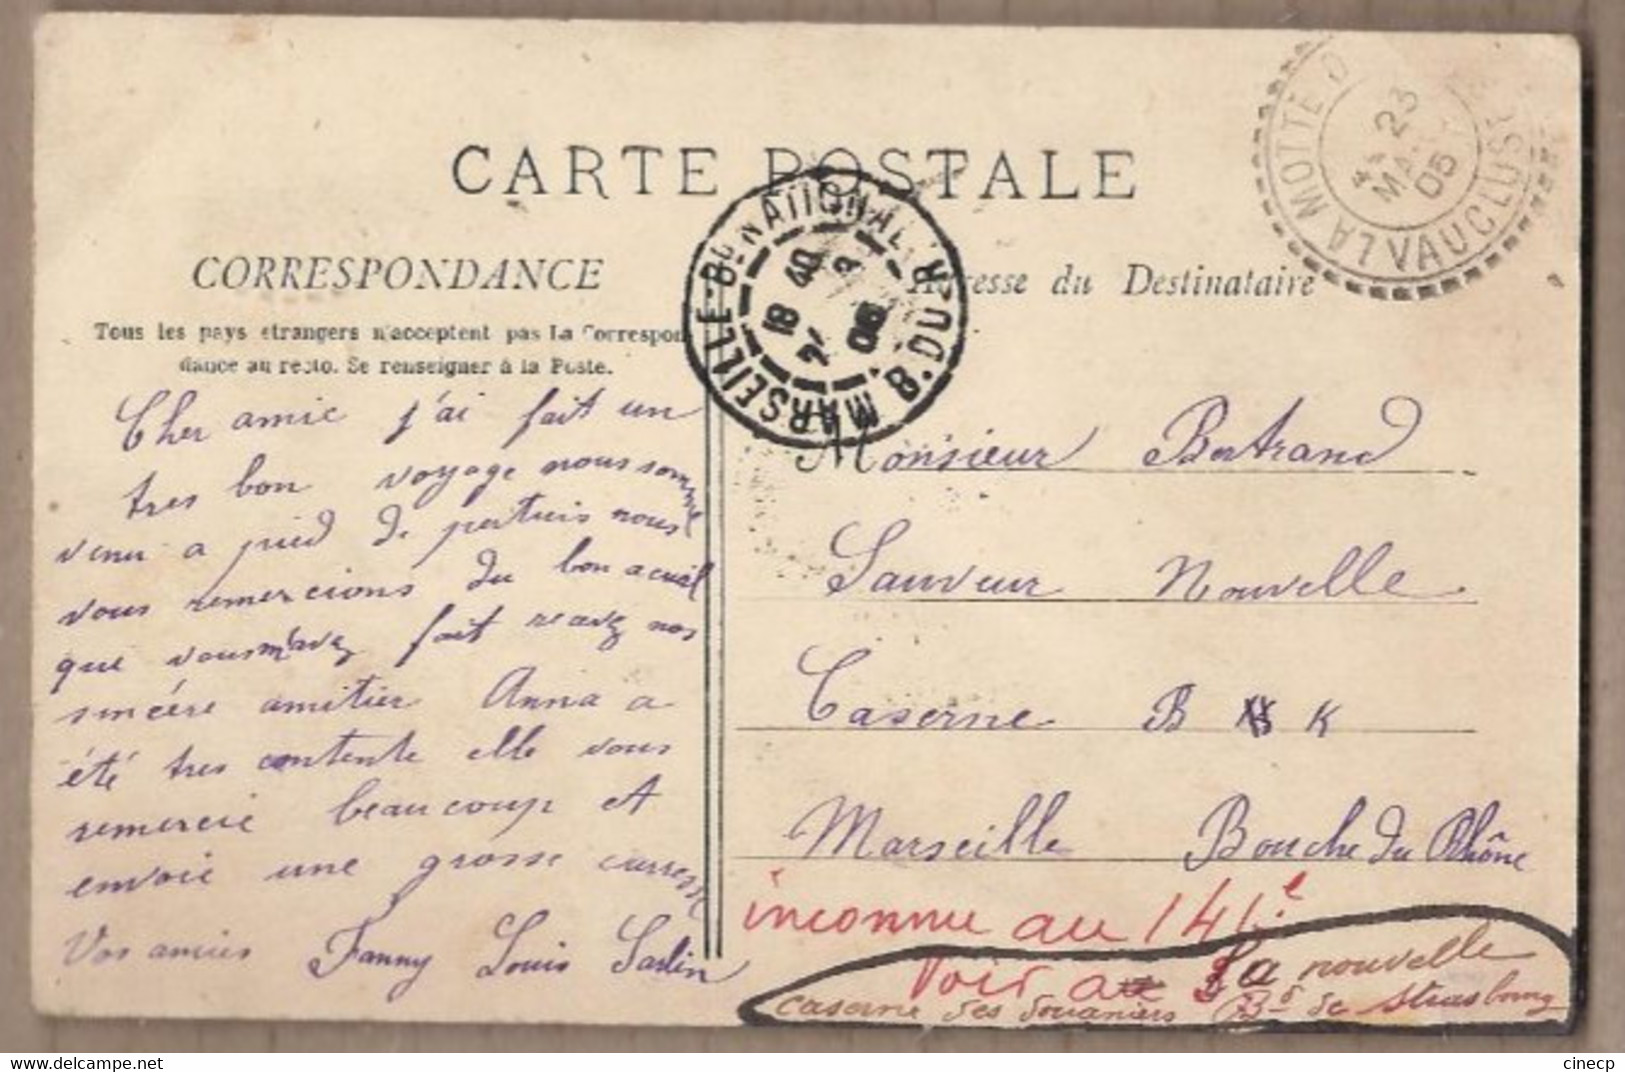 CARTE POSTALE
CORRESPONDANCE
Tous les pays etrangers n'acceptent pas la Correspon-
dance au recto. Se renseigner à la Poste.
Adresse du Destinataire
LA MOTTE D
VAUCLUSE
23
MA
05
MARSEILLE-Bd NATIONAL
B. DU R.
18 40
2 3
Cher amie j'ai fait un
tres bon voyage nous somme
venu a pied de pertuis nous
vous remercions du bon acuil
que vous m'avez fait recevez nos
sincére amitier Anna a
été tres contente elle vous
remercie beaucoup et
envoie une grosse carresse
Vos amies Fanny Louis Sarlin
Monsieur Bertrand
Sauveur Nouvelle
Caserne B K
Marseille Bouche du Rhône
inconnu au 141e
Voir a La nouvelle
caserne des douaniers Bd de Strasbourg
cinecp